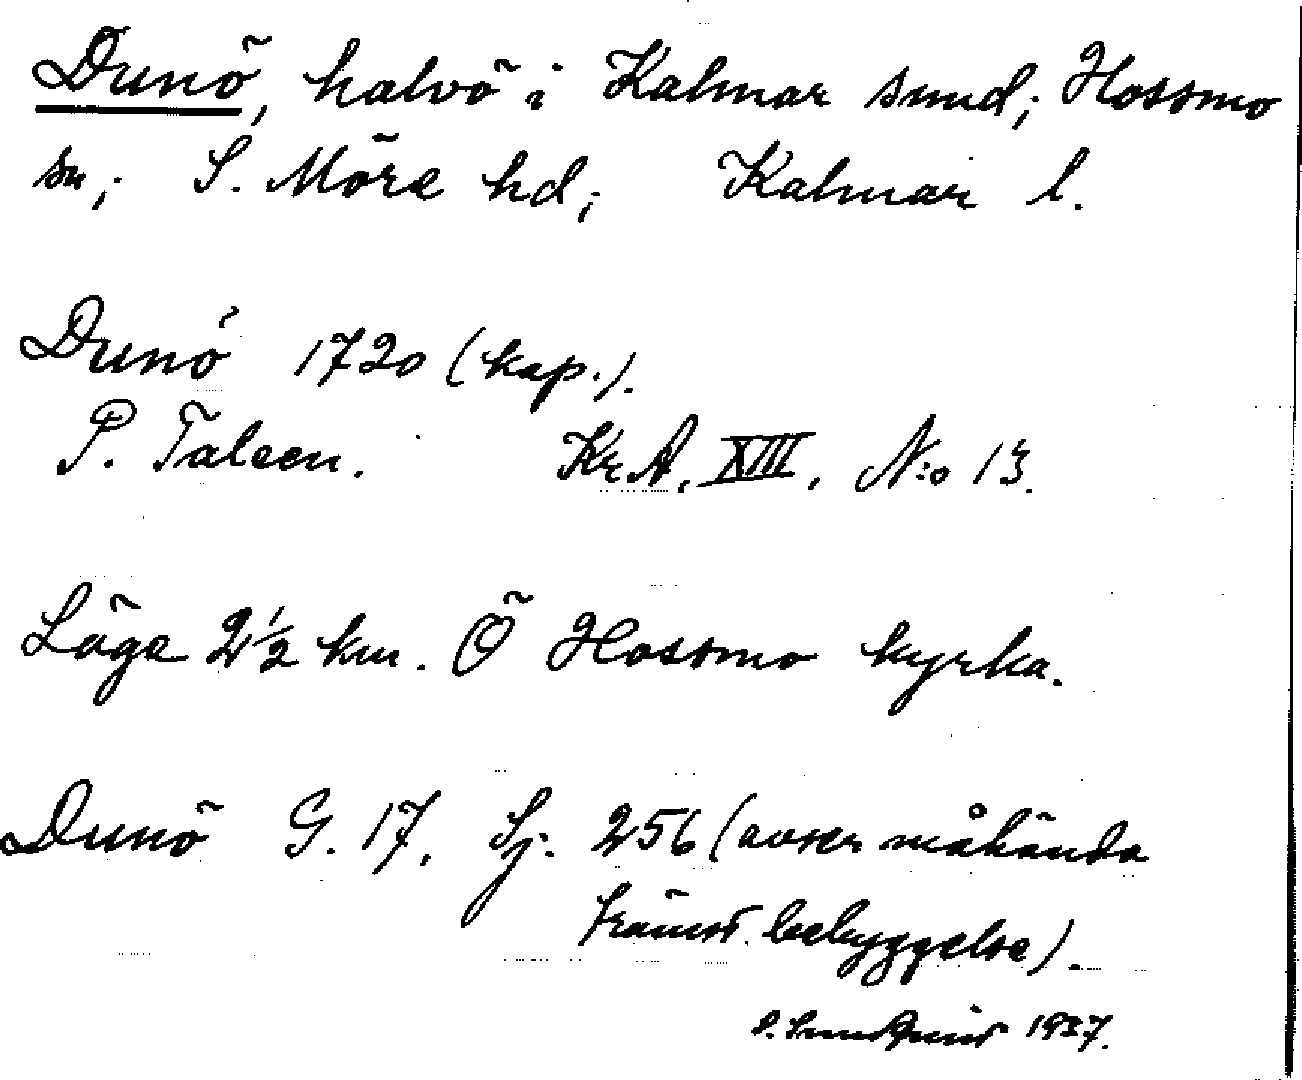 Dunö, halvö i Kalmar sund; Hossmo
sn; S. Möre hd; Kalmar l.
Dunö 1720 (kap.).
P. Taleen. Kr.A. XIII. N:o 13.
Läge 2 1/2 km. Ö Hossmo kyrka.
Dunö G. 17. Sj. 256 (avser måhända
främst bebyggelse).
1937.